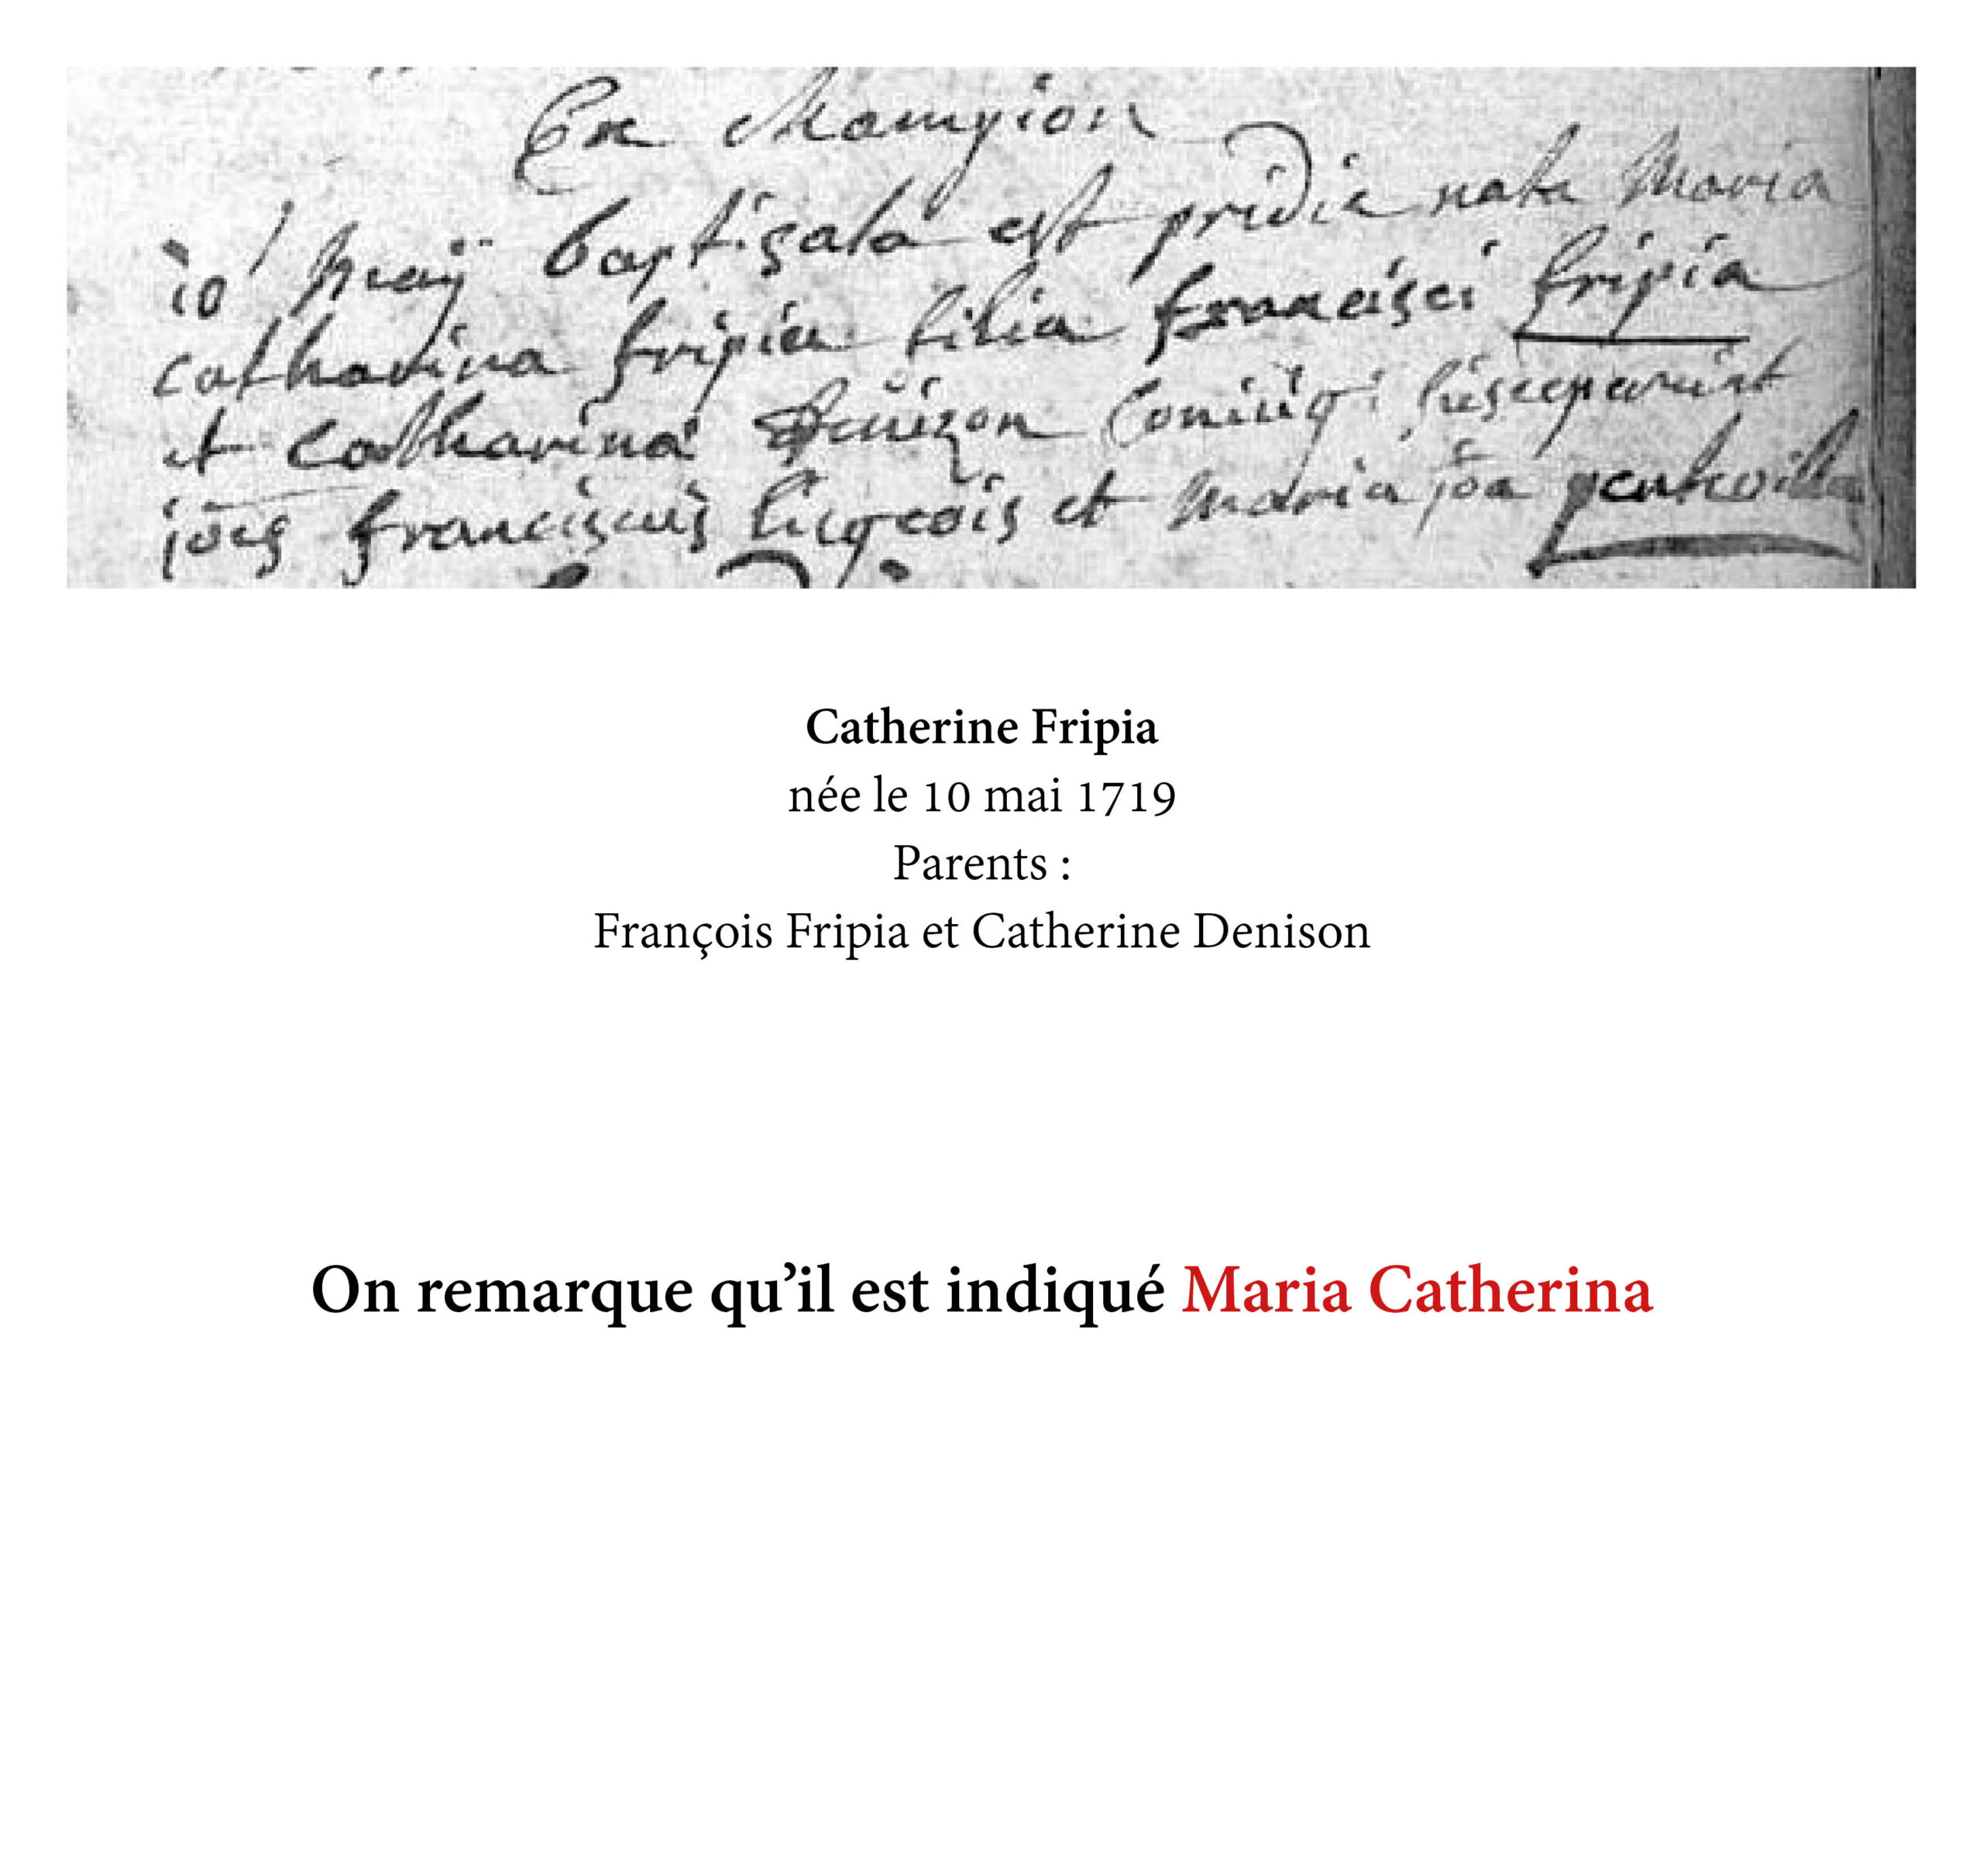 Ex Champion
10 maÿ baptisata est pridie nata Maria
catharina fripia filia francisci fripia
et catharina coniugi susceperunt
joes franciscus liegeois et maria joa
Catherine Fripia
née le 10 mai 1719
Parents :
François Fripia et Catherine Denison
On remarque qu’il est indiqué Maria Catherina